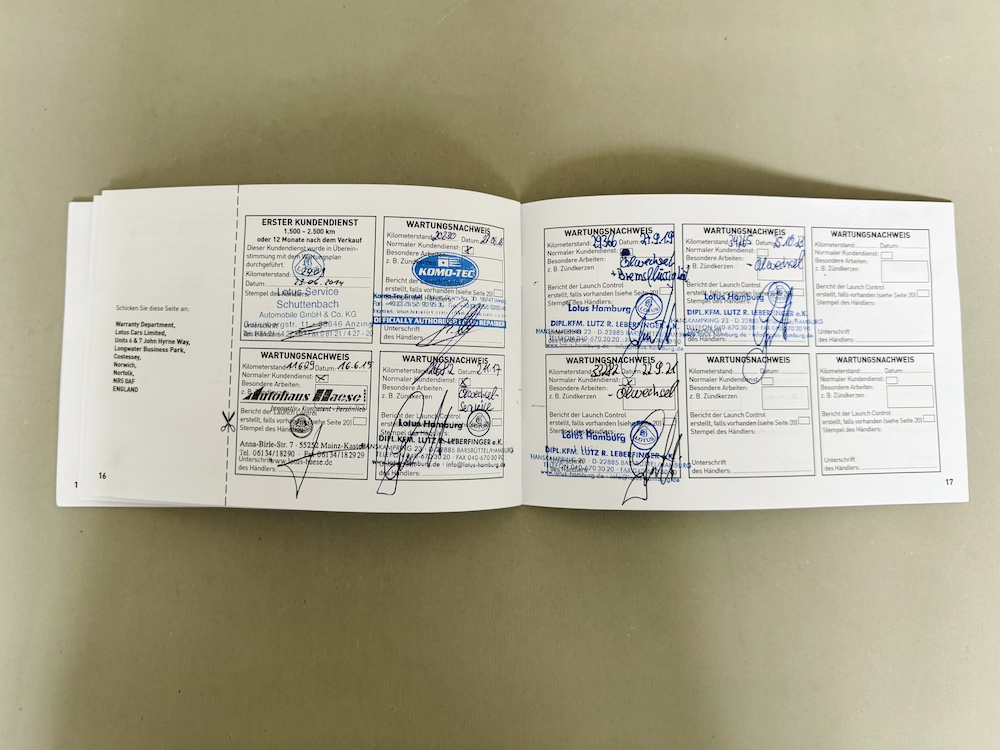 Schicken Sie diese Seite an:
Warranty Department,
Lotus Cars Limited,
Units 6 & 7 John Hyrne Way,
Longwater Business Park,
Costessey,
Norwich,
Norfolk,
NR5 0AF
ENGLAND
16
ERSTER KUNDENDIENST
1.500 – 2.500 km
oder 12 Monate nach dem Verkauf
Dieser Kundendienst wurde in Überein-
stimmung mit dem Wartungsplan
durchgeführt.
Kilometerstand:
Datum: 23.06.2014
Stempel des Händlers:
Lotus Service
Schuttenbach
Automobile GmbH & Co. KG
Anzing
WARTUNGSNACHWEIS
Kilometerstand: 11609 Datum: 16.6.15
Normaler Kundendienst: X
Besondere Arbeiten:
z. B.
Autohaus Haese
Innovativ · Kompetent · Persönlich
Bericht der Launch Control
erstellt, falls vorhanden (siehe Seite 20)
Stempel des
Anna-Birle-Str. 7 · 55252 Mainz-Kastel
Tel. 06134/18290 · Fax 06134/182929
Unterschrift www.lotus-haese.de
des Händlers:
WARTUNGSNACHWEIS
Kilometerstand: 20280 Datum:
Normaler Kundendienst: X
Besondere Arbeiten:
z. B. Zündkerzen
KOMO-TEC
Bericht der
erstellt, falls vorhanden (siehe Seite 20)
Komo-Tec GmbH
OFFICIALLY AUTHORISED LOTUS REPAIRER
Unterschrift
des Händlers:
WARTUNGSNACHWEIS
Kilometerstand: Datum: 2.11.17
Normaler Kundendienst: X
Besondere Arbeiten: Ölwechsel-
z. B. Zündkerzen Service
Bericht der Launch Control
erstellt, falls vorhanden
Stempel des Lotus Hamburg
DIPL.KFM. LUTZ R. LEBERFINGER e.K.
HANSKAMPRING 23 · D-22885 BARSBÜTTEL/HAMBURG
TELEFON 040-670 30 20 · FAX 040-670 30 90
www.lotus-hamburg.de · info@lotus-hamburg.de
des Händlers:
WARTUNGSNACHWEIS
Kilometerstand: 29366 Datum: 27.9.19
Normaler Kundendienst:
Besondere Arbeiten: Ölwechsel
z. B. Zündkerzen + Bremsflüssigkeit
Bericht der Launch Control
erstellt, falls vorhanden (siehe Seite 20)
Stempel des Händlers:
Lotus Hamburg
LOTUS
DIPL.KFM. LUTZ R. LEBERFINGER e.K.
HANSKAMPRING 23 · D-22885 BARSBÜTTEL/HAMBURG
TELEFON 040-670 30 20 · FAX 040-670 30 90
www.lotus-hamburg.de · info@lotus-hamburg.de
WARTUNGSNACHWEIS
Kilometerstand: Datum: 5.10.23
Normaler Kundendienst:
Besondere Arbeiten: - Ölwechsel
z. B. Zündkerzen
Bericht der Launch Control
erstellt, falls vorhanden (siehe Seite 20)
Stempel des Händlers:
Lotus Hamburg
DIPL.KFM. LUTZ R. LEBERFINGER e.K.
HANSKAMPRING 23 · D-22885 BARSBÜTTEL/HAMBURG
TELEFON 040-670 30 20 · FAX 040-670 30 90
www.lotus-hamburg.de · info@lotus-hamburg.de
WARTUNGSNACHWEIS
Kilometerstand: Datum:
Normaler Kundendienst:
Besondere Arbeiten:
z. B.
Bericht der Launch Control
erstellt, falls vorhanden (siehe Seite 20)
Stempel des Händlers:
Unterschrift
des Händlers:
WARTUNGSNACHWEIS
Kilometerstand: Datum: 22.9.21
Normaler Kundendienst:
Besondere Arbeiten:
z. B. Zündkerzen - Ölwechsel
Bericht der Launch Control
erstellt, falls vorhanden (siehe Seite 20)
Stempel des Händlers:
Lotus Hamburg
LOTUS
DIPL.KFM. LUTZ R. LEBERFINGER e.K.
HANSKAMPRING 23 · D-22885 BARSBÜTTEL/HAMBURG
TELEFON 040-670 30 20 · FAX 040-670 30 90
www.lotus-hamburg.de · info@lotus-hamburg.de
WARTUNGSNACHWEIS
Kilometerstand: Datum:
Normaler Kundendienst:
Besondere Arbeiten:
z. B. Zündkerzen
Bericht der Launch Control
erstellt, falls vorhanden (siehe Seite 20)
Stempel des Händlers:
Unterschrift
des Händlers:
WARTUNGSNACHWEIS
Kilometerstand: Datum:
Normaler Kundendienst:
Besondere Arbeiten:
z. B. Zündkerzen
Bericht der Launch Control
erstellt, falls vorhanden (siehe Seite 20)
Stempel des Händlers:
Unterschrift
des Händlers:
17